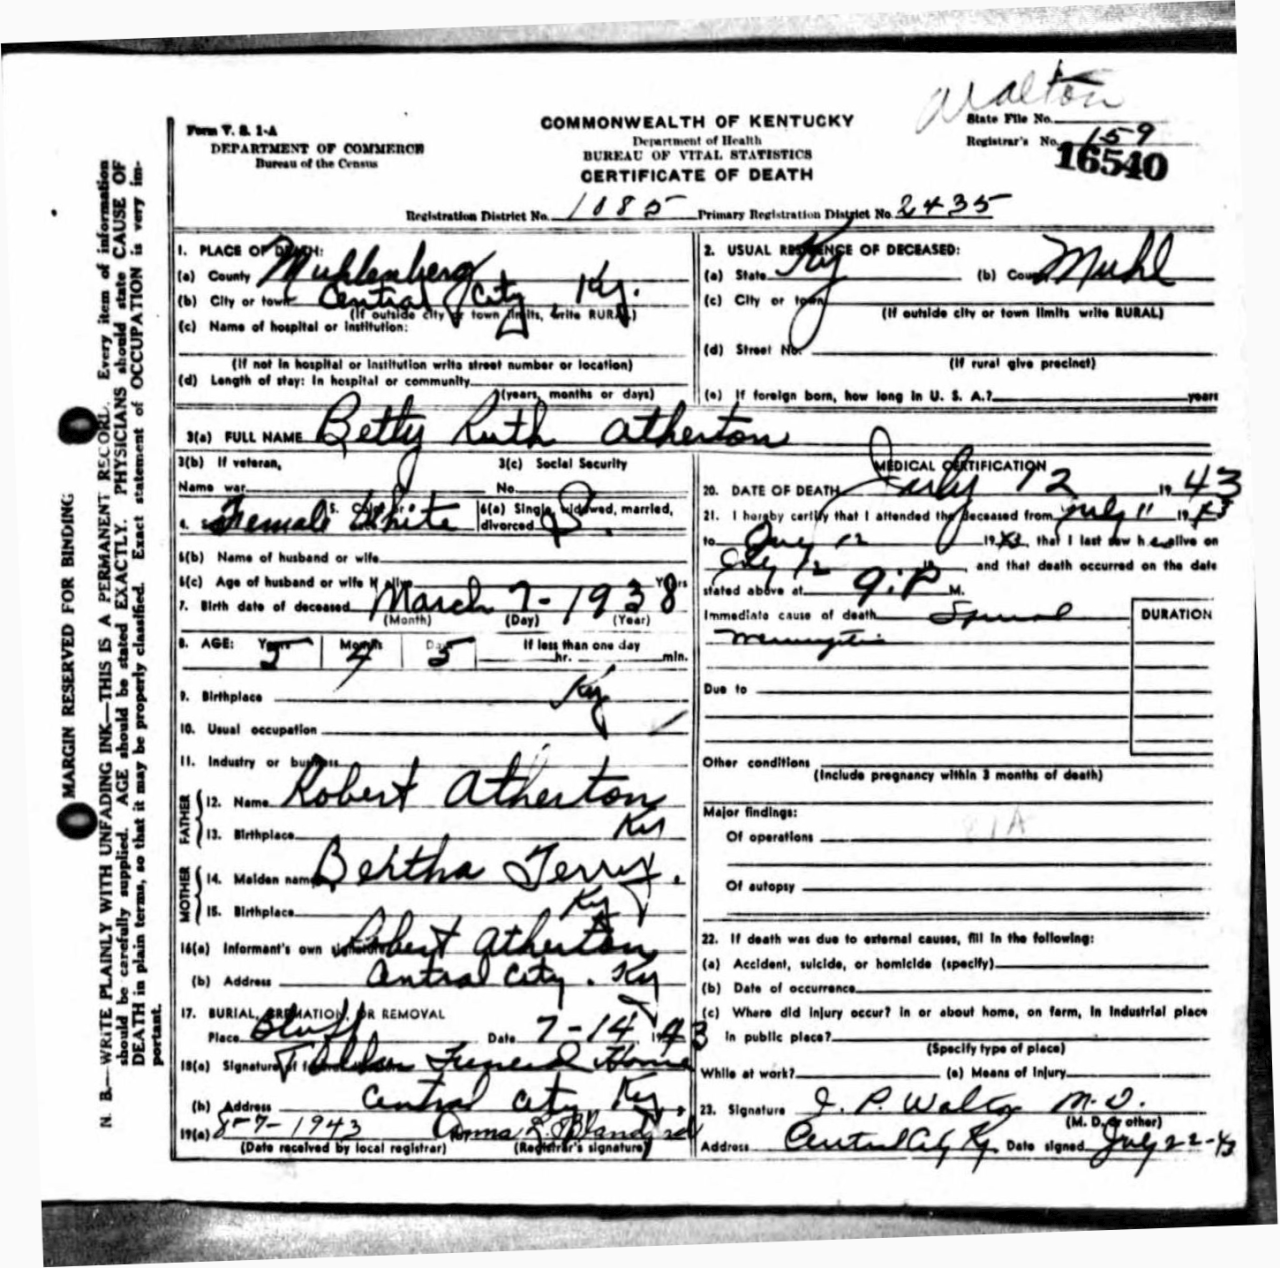 Walton
Form V. S. 1-A
DEPARTMENT OF COMMERCE
Bureau of the Census
COMMONWEALTH OF KENTUCKY
Department of Health
BUREAU OF VITAL STATISTICS
CERTIFICATE OF DEATH
State File No.
Registrar's No. 159
16540
Registration District No. 1085 Primary Registration District No. 2435
MARGIN RESERVED FOR BINDING
N. B.—WRITE PLAINLY WITH UNFADING INK—THIS IS A PERMANENT RECORD. Every item of information
should be carefully supplied. AGE should be stated EXACTLY. PHYSICIANS should state CAUSE OF
DEATH in plain terms, so that it may be properly classified. Exact statement of OCCUPATION is very im-
portant.
1. PLACE OF DEATH:
(a) County Muhlenberg
(b) City or town Central City, Ky.
(If outside city or town limits, write RURAL)
(c) Name of hospital or institution:
(If not in hospital or institution write street number or location)
(d) Length of stay: In hospital or community
(years, months or days)
2. USUAL RESIDENCE OF DECEASED:
(a) State Ky (b) County Muhl
(c) City or town
(If outside city or town limits write RURAL)
(d) Street No.
(If rural give precinct)
(e) If foreign born, how long in U. S. A.? years
3(a) FULL NAME Betty Ruth Atherton
3(b) If veteran, 3(c) Social Security
Name war No.
4. Sex Female 5. Color or White 6(a) Single, widowed, married,
divorced S.
6(b) Name of husband or wife
6(c) Age of husband or wife if alive Years
7. Birth date of deceased March 7-1938
(Month) (Day) (Year)
8. AGE: Years Months Days If less than one day
5 4 5 hr. min.
9. Birthplace Ky
10. Usual occupation
11. Industry or business
FATHER
12. Name Robert Atherton
13. Birthplace Ky
MOTHER
14. Maiden name Bertha Terry.
15. Birthplace Ky
16(a) Informant's own signature Robert Atherton
(b) Address Central City. Ky
17. BURIAL, CREMATION, OR REMOVAL
Place Bluff Date 7-14 1943
18(a) Signature of funeral Funeral Home
(b) Address Central City Ky.
19(a) 8-7-1943 Anna L. Bland
(Date received by local registrar) (Registrar's signature)
MEDICAL CERTIFICATION
20. DATE OF DEATH July 12 1943
21. I hereby certify that I attended the deceased from July 11 1943
to July 12 1943, that I last saw her alive on
July 12, and that death occurred on the date
stated above at 9:P M.
Immediate cause of death Spinal
Meningitis
DURATION
Due to
Other conditions
(Include pregnancy within 3 months of death)
Major findings:
Of operations
Of autopsy
22. If death was due to external causes, fill in the following:
(a) Accident, suicide, or homicide (specify)
(b) Date of occurrence
(c) Where did injury occur? in or about home, on farm, in industrial place
in public place?
(Specify type of place)
While at work? (e) Means of Injury
23. Signature J. P. Walton M.D.
(M. D. or other)
Address Central City Ky. Date signed July 22-43